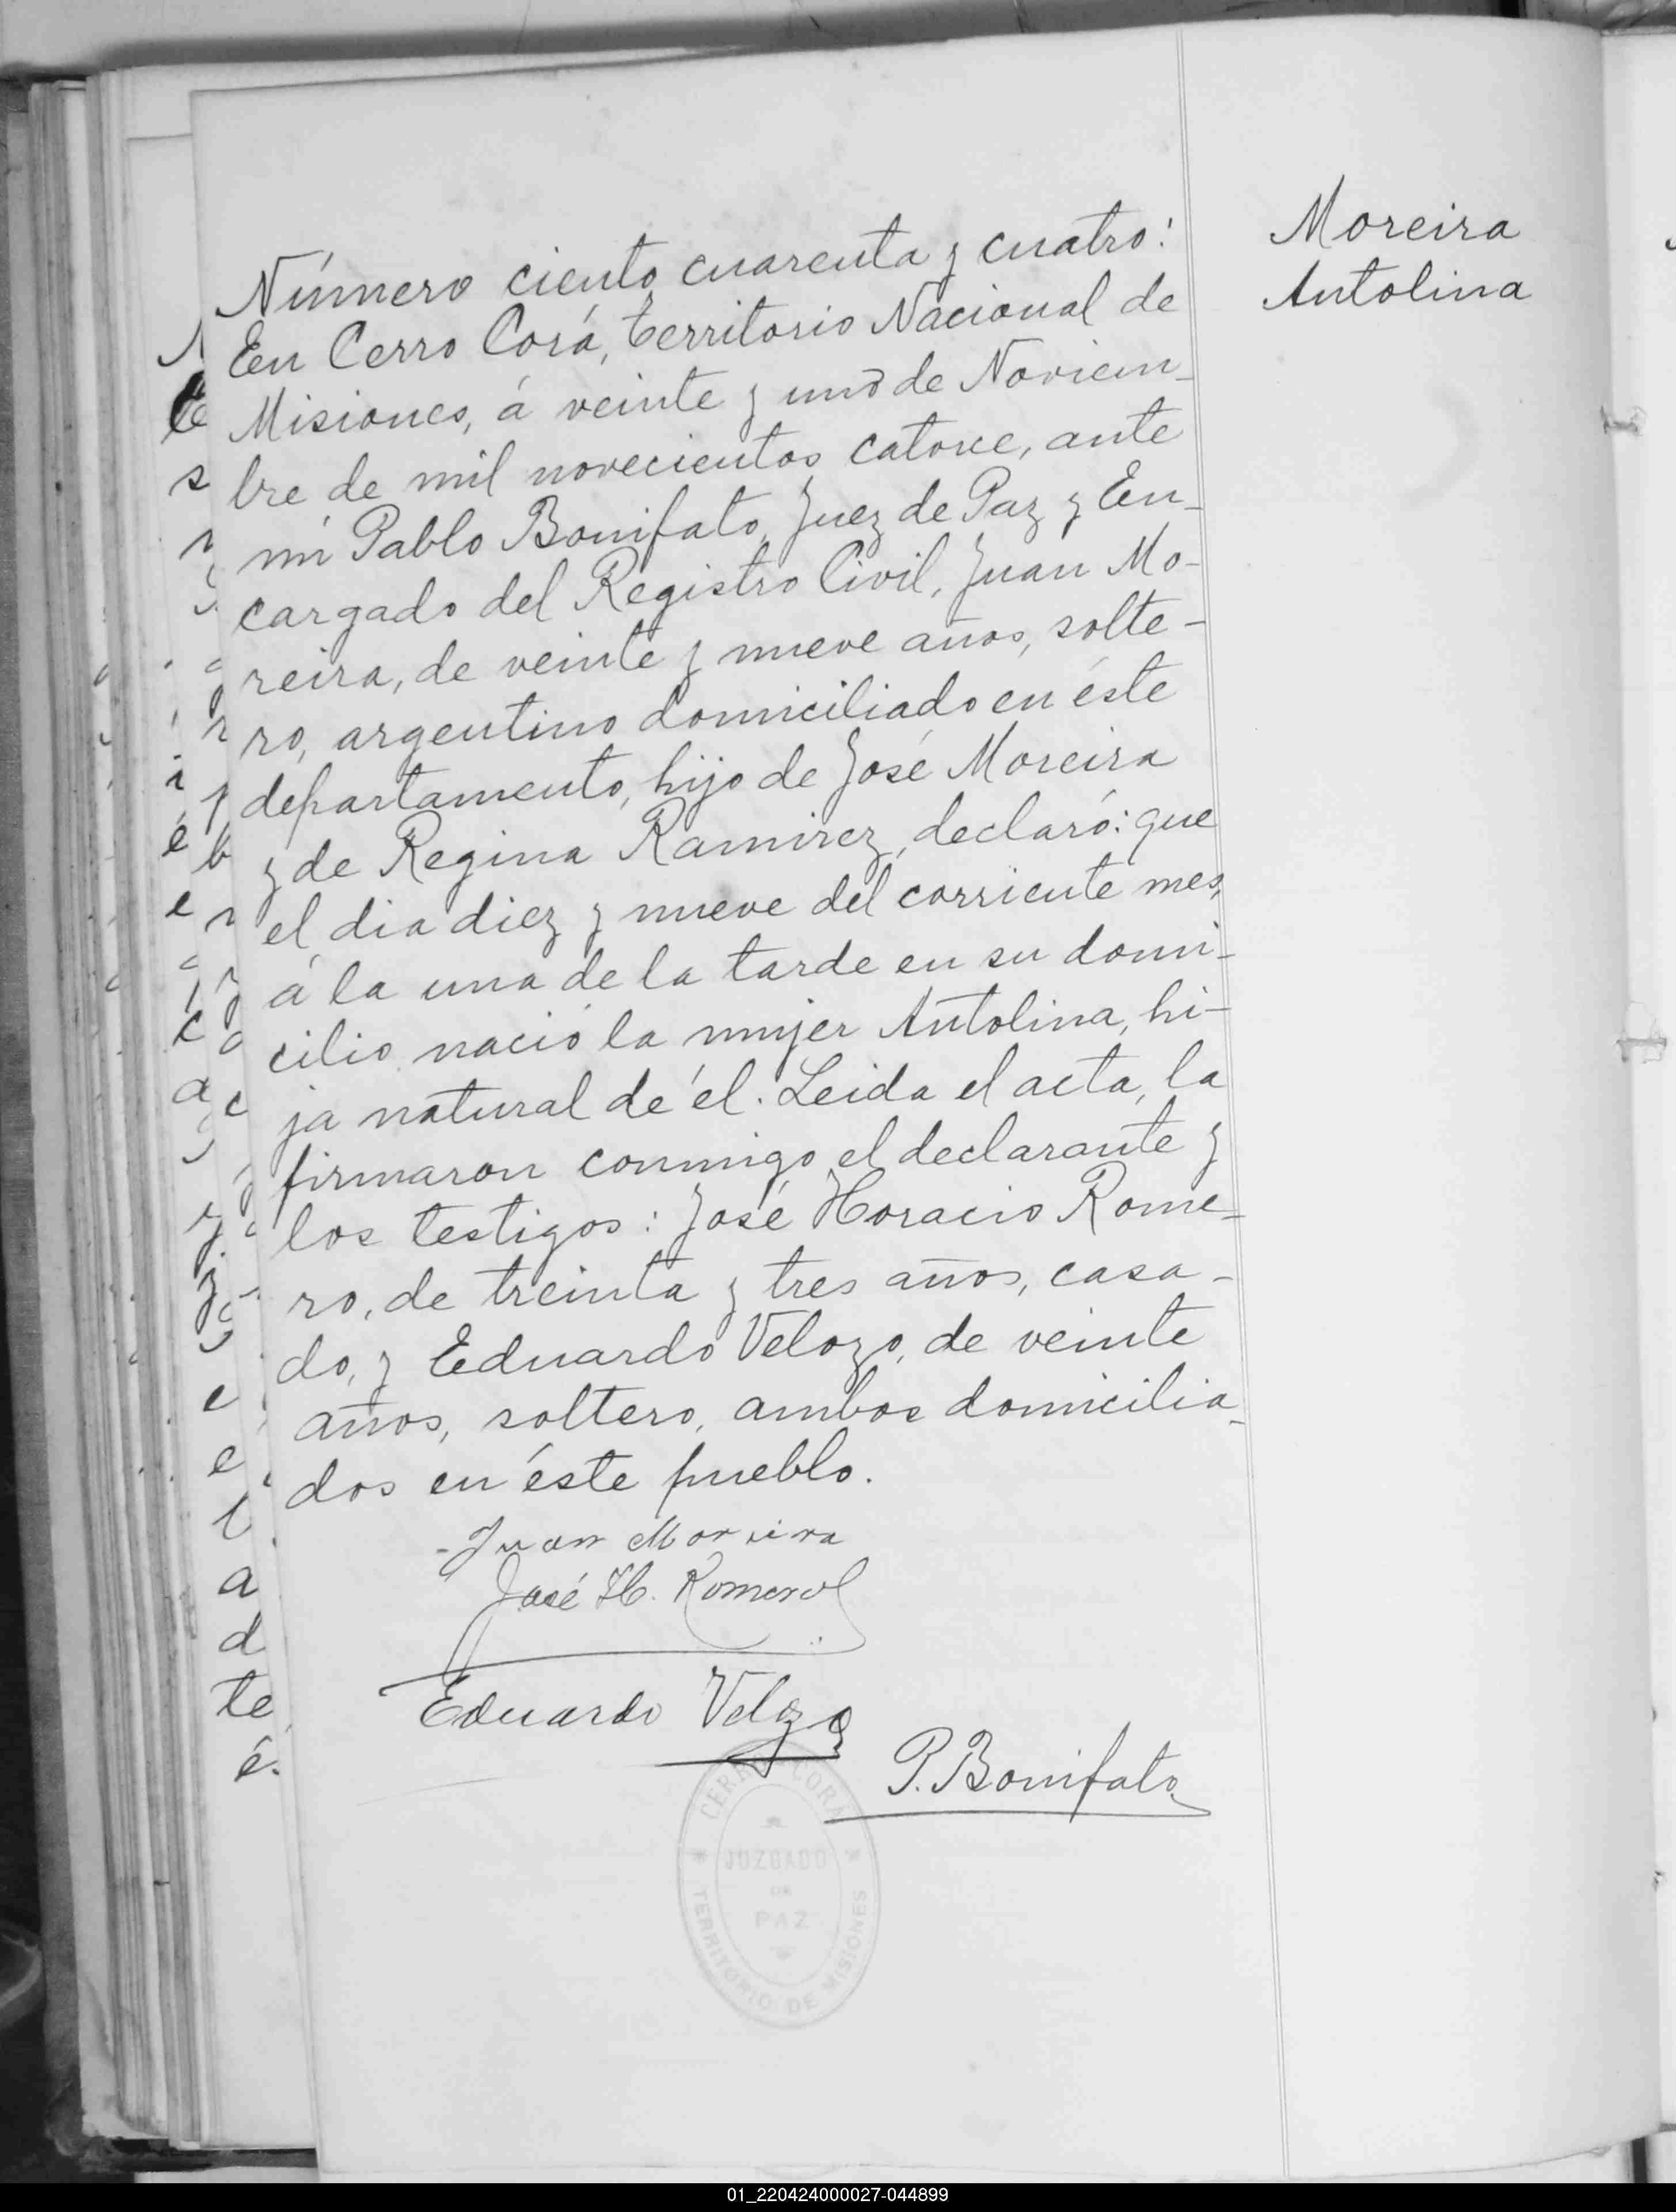 Número ciento cuarenta y cuatro:
En Cerro Corá, territorio Nacional de
Misiones, á veinte y uno de Noviem-
bre de mil novecientos catorce, ante
mi Pablo Bonifato, Juez de Paz y En-
cargado del Registro Civil, Juan Mo-
reira, de veinte y nueve años, solte-
ro, argentino domiciliado en éste
departamento, hijo de José Moreira
y de Regina Ramirez, declaró: que
el dia diez y nueve del corriente mes,
á la una de la tarde en su domi-
cilio nació la mujer Antolina, hi-
ja natural de él. Leida el acta, la
firmaron conmigo el declarante y
los testigos: José Horacio Rome-
ro, de treinta y tres años, casa-
do, y Eduardo Velozo, de veinte
años, soltero, ambos domicilia-
dos en éste pueblo.
Juan Moreira
José H. Romero
Eduardo Velozo
P. Bonifato
CERRO CORÁ
JUZGADO
DE
PAZ
TERRITORIO DE MISIONES
Moreira
Antolina
01_220424000027-044899